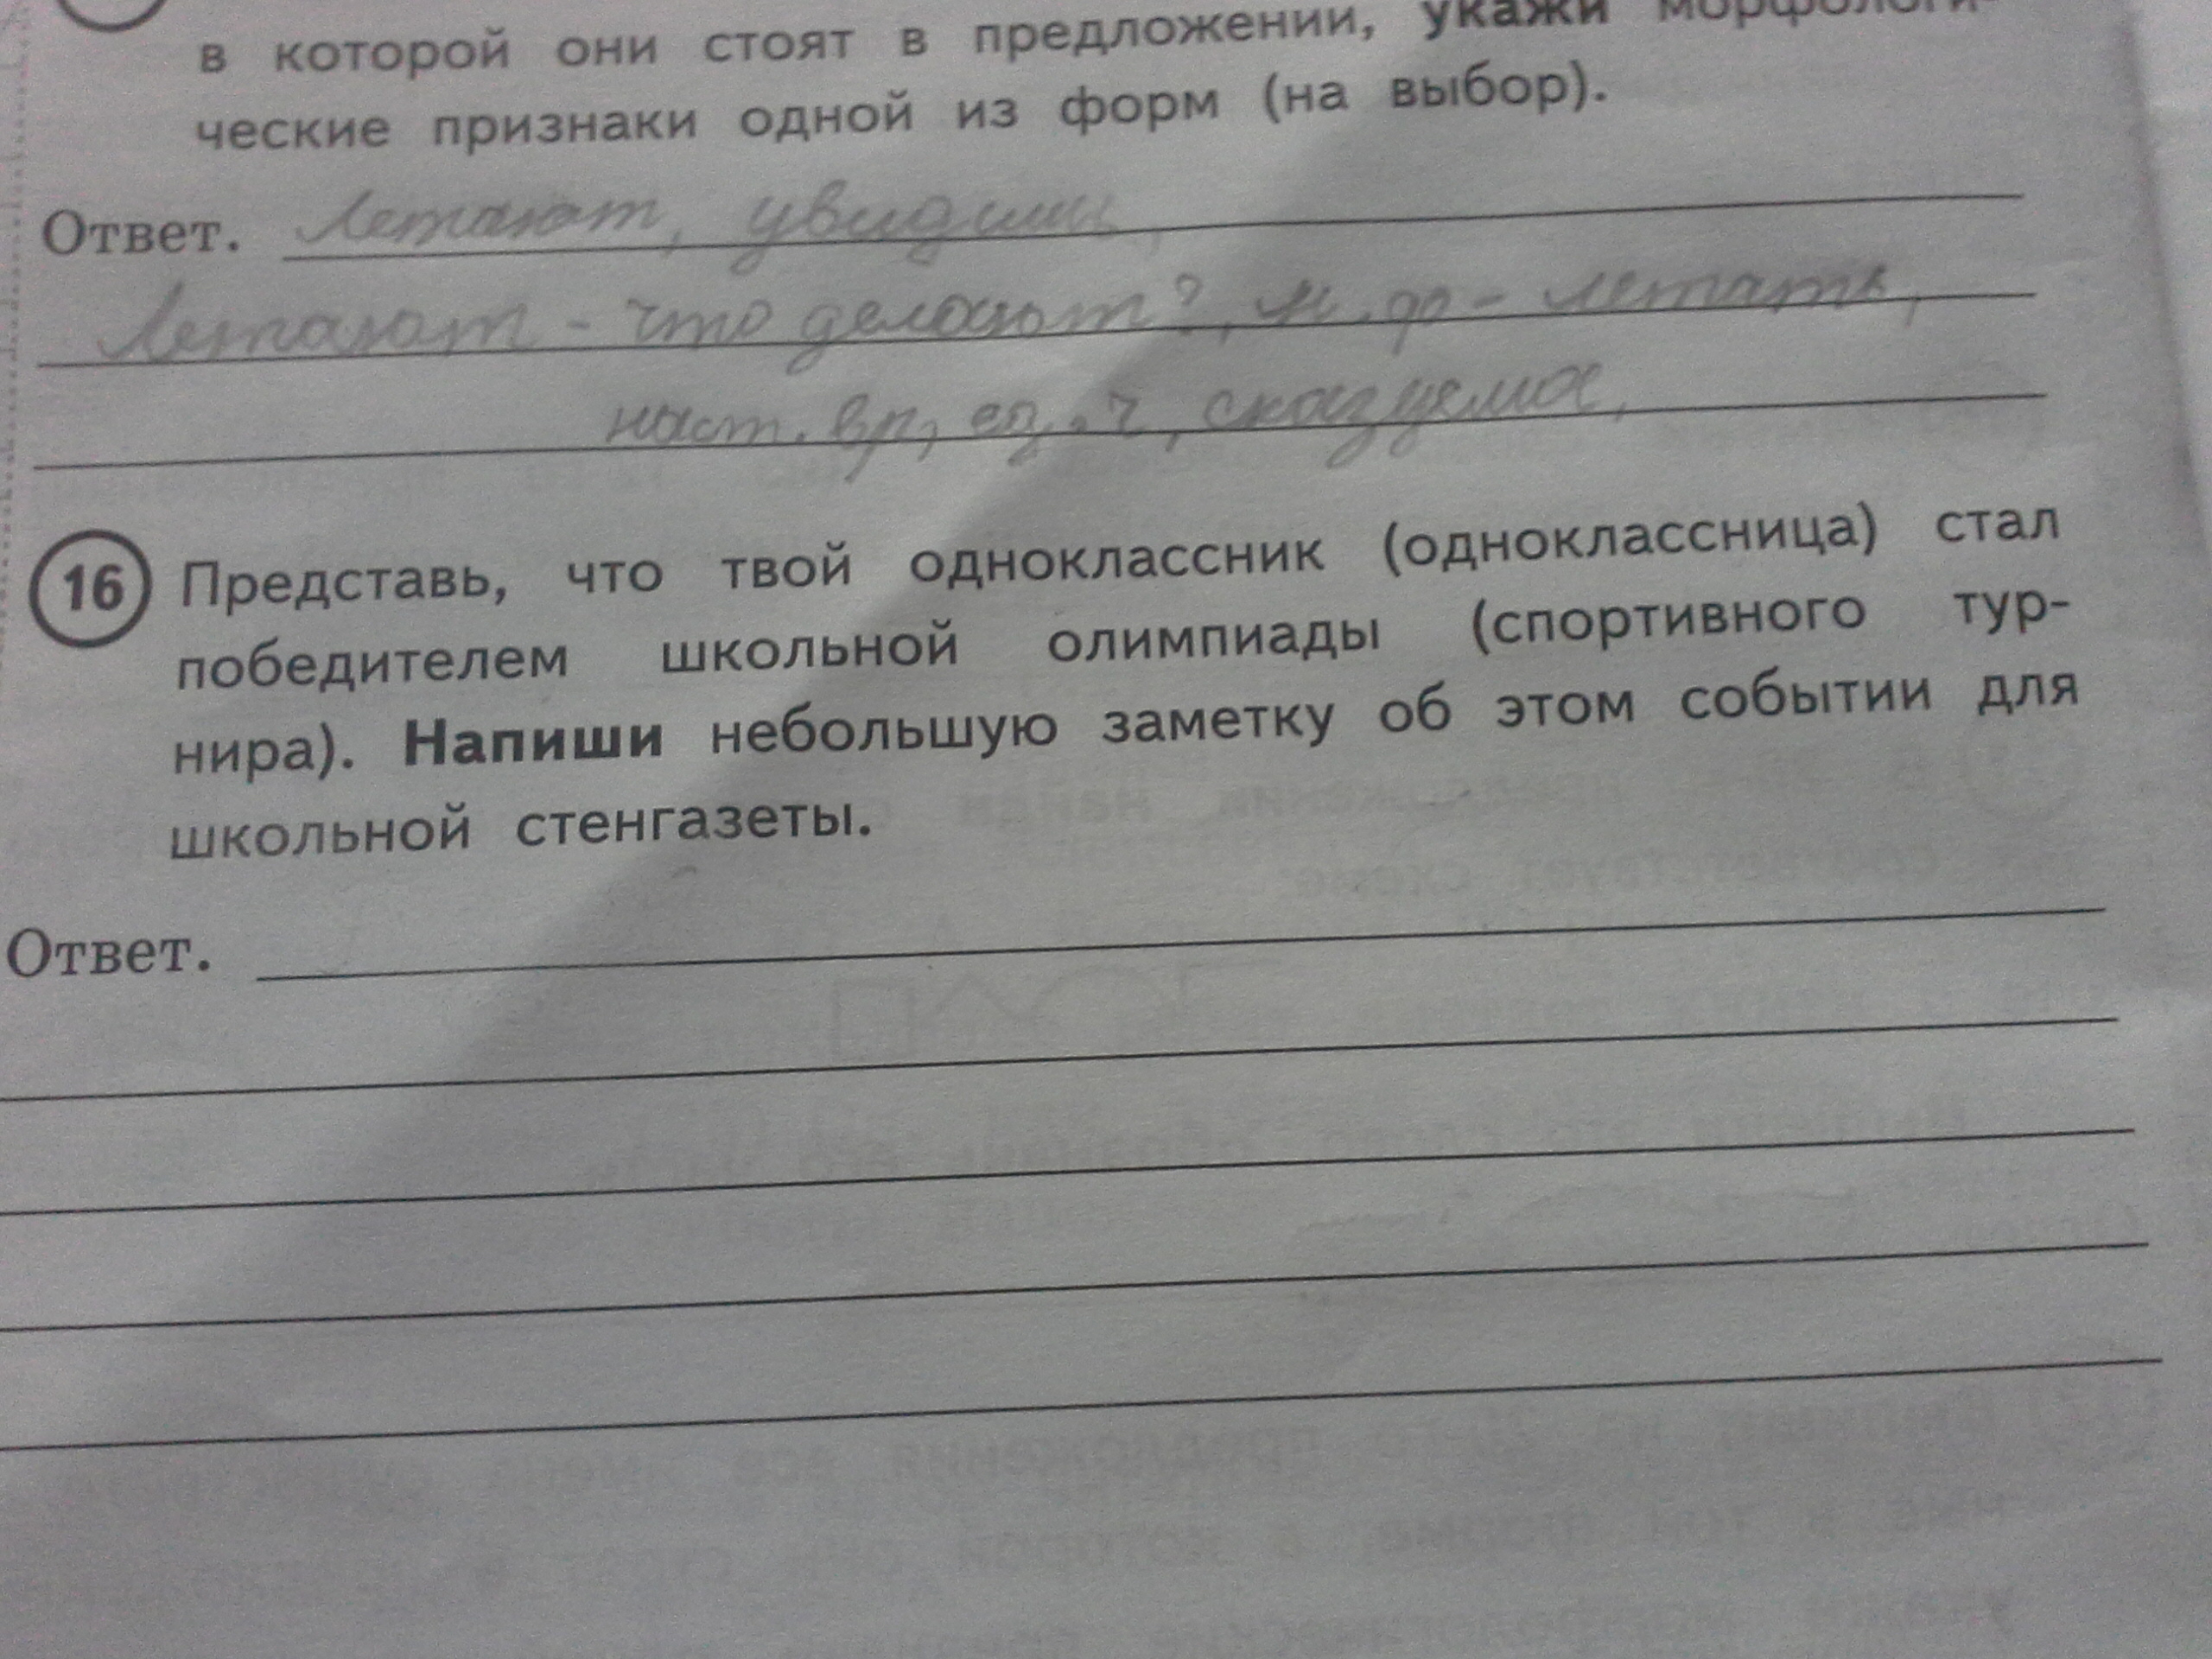 в которой они стоят в предложении, укажи морфологи-
ческие признаки одной из форм (на выбор).
Ответ. Летают, увидим,
Летают - что делают?, н. ф - летать,
наст. вр, ед. ч, сказуемое,
16 Представь, что твой одноклассник (одноклассница) стал
победителем школьной олимпиады (спортивного тур-
нира). Напиши небольшую заметку об этом событии для
школьной стенгазеты.
Ответ.